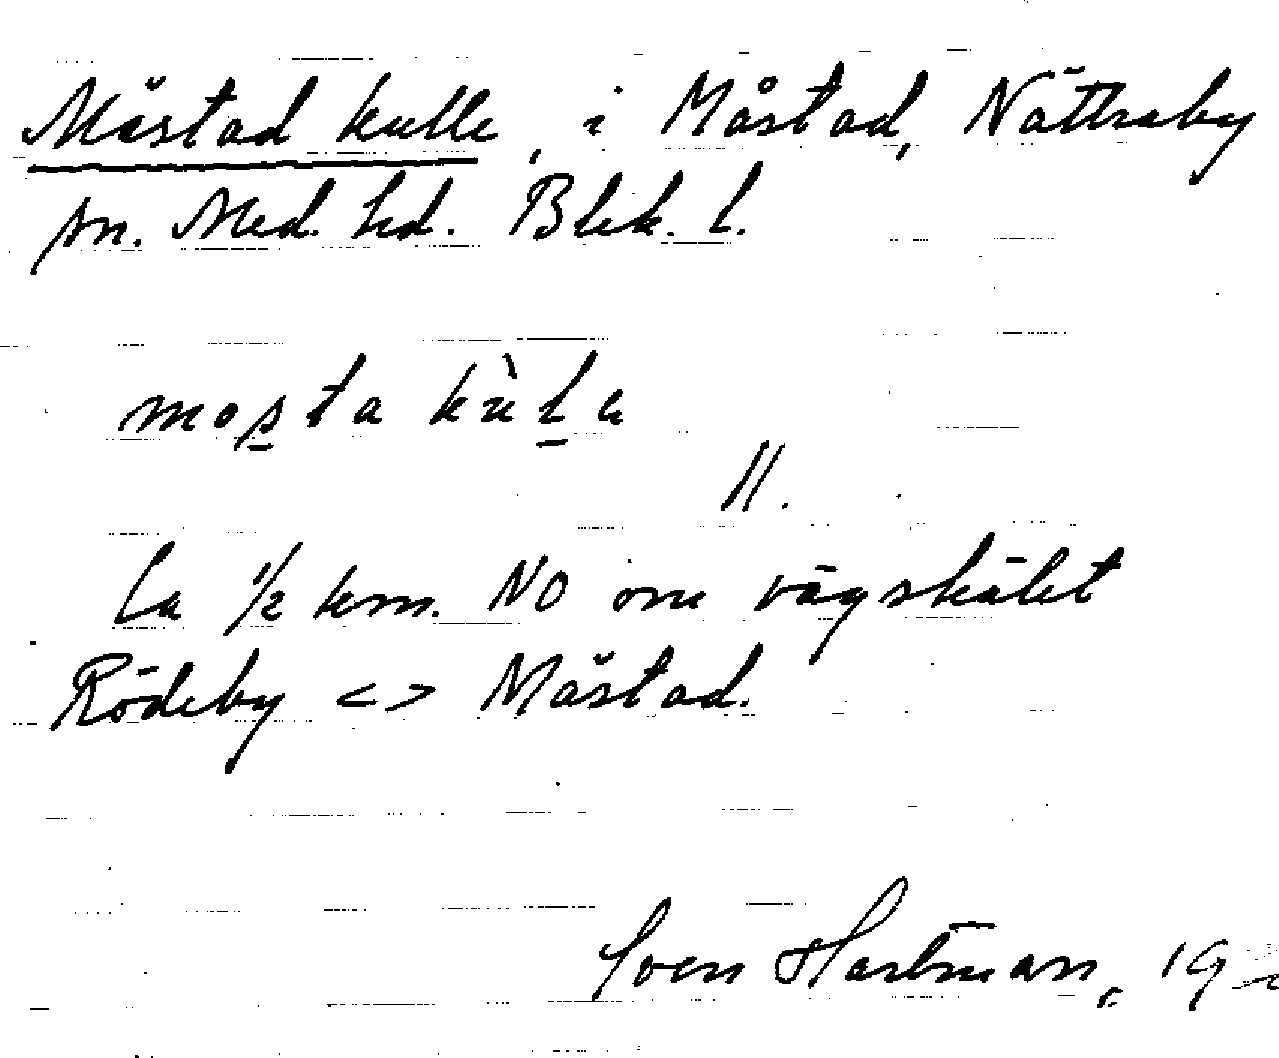 Måstad kulle, i Måstad, Nättraby
sn. Med. hd. Blek. l.
mosta kùlu
Ca 1/2 km. NO om vägskälet
Rödeby <> Måstad.
Sven Hartman, 19